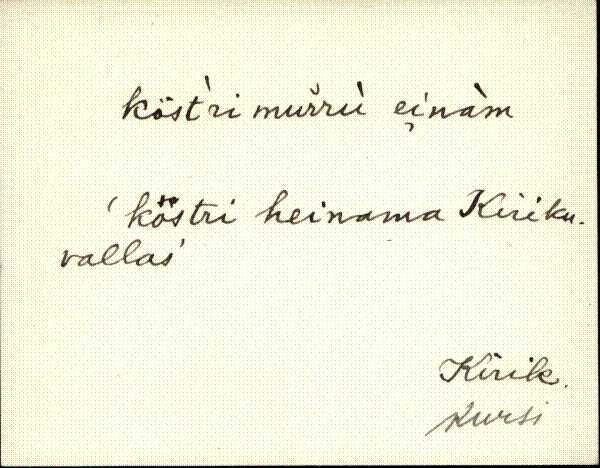 köst̀ri mur̆rù ei̯nàm
'köstri heinama Kiriku-
vallas'
Kirik.
Kursi